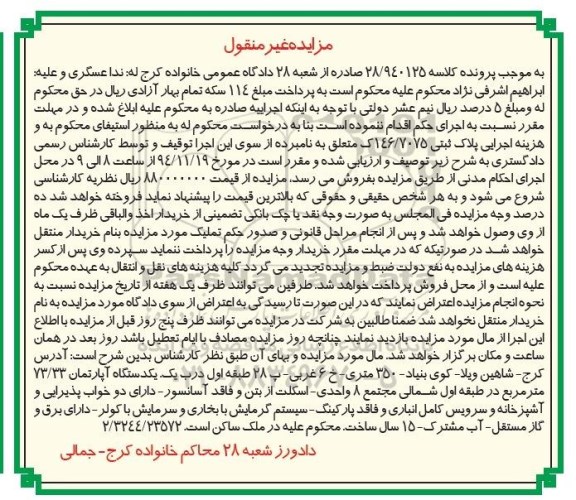 مزایده‌غیر منقول
به موجب پرونده کلاسه ۲۸/۹۴۰۱۲۵ صادره از شعبه ۲۸ دادگاه عمومی خانواده کرج له: ندا عسگری و علیه:
ابراهیم اشرفی نژاد محکوم علیه محکوم است به پرداخت مبلغ ۱۱۴ سکه تمام بهار آزادی ریال در حق محکوم
له ومبلغ ۵ درصد ریال نیم عشر دولتی با توجه به اینکه اجراییه صادره به محکوم علیه ابلاغ شده و در مهلت
مقرر نسبت به اجرای حکم اقدام ننموده است بنا به درخواست محکوم له به منظور استیفای محکوم به و
هزینه اجرایی پلاک ثبتی ۱۴۶/۷۰۷۵ک متعلق به نامبرده از سوی این اجرا توقیف و توسط کارشناس رسمی
دادگستری به شرح زیر توصیف و ارزیابی شده و مقرر است در مورخ ۹۴/۱۱/۱۹ از ساعت ۸ الی ۹ در محل
اجرای احکام مدنی از طریق مزایده بفروش می رسد. مزایده از قیمت ۸۸۰۰۰۰۰۰۰ ریال نظریه کارشناسی
شروع می شود و به هر شخص حقیقی و حقوقی که بالاترین قیمت را پیشنهاد نماید فروخته خواهد شد ده
درصد وجه مزایده فی المجلس به صورت وجه نقد یا چک بانکی تضمینی از خریدار اخذ والباقی ظرف یک ماه
از وی وصول خواهد شد و پس از انجام مراحل قانونی و صدور حکم تملیک مورد مزایده بنام خریدار منتقل
خواهد شد در صورتیکه که در مهلت مقرر خریدار وجه مزایده را پرداخت ننماید سپرده وی پس از کسر
هزینه های مزایده به نفع دولت ضبط و مزایده تجدید می گردد کلیه هزینه های نقل و انتقال به عهده محکوم
علیه است و از محل فروش پرداخت خواهد شد. طرفین می توانند ظرف یک هفته از تاریخ مزایده نسبت به
نحوه انجام مزایده اعتراض نمایند که در این صورت تا رسیدگی به اعتراض از سوی دادگاه مورد مزایده به نام
خریدار منتقل نخواهد شد ضمنا طالبین به شرکت در مزایده می توانند ظرف پنج روز قبل از مزایده با اطلاع
این اجرا از مال مورد مزایده بازدید نمایند چنانچه روز مزایده مصادف با ایام تعطیل باشد روز بعد در همان
ساعت و مکان برگزار خواهد شد. مال مورد مزایده و بهای آن طبق نظر کارشناس بدین شرح است: آدرس
کرج- شاهین ویلا- کوی بنیاد- ۳۵۰ متری- خ ۶ غربی- پ ۲۸ طبقه اول درب یک، یکدستگاه آپارتمان ۷۳/۳۳
مترمربع در طبقه اول شمالی مجتمع ۸ واحدی- اسکلت از بتن و فاقد آسانسور- دارای دو خواب پذیرایی و
آشپزخانه و سرویس کامل انباری و فاقد پارکینگ- سیستم گرمایش با بخاری و سرمایش با کولر- دارای برق و
گاز مستقل- آب مشترک- ۱۵ سال ساخت. محکوم علیه در ملک ساکن است. ۲/۳۲۴۴/۲۳۵۷۲
دادورز شعبه ۲۸ محاکم خانواده کرج- جمالی